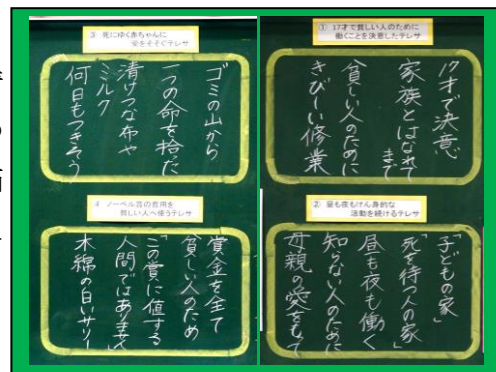 ① 17才で貧しい人のために
働くことを決意したテレサ
17才で決意
家族とはなれてまで
貧しい人のために
きびしい修業
② 昼も夜もけん身的な
活動を続けるテレサ
「子どもの家」
「死を待つ人の家」
昼も夜も働く
知らない人のために
母親の愛をもって
③ 死にゆく赤ちゃんに
愛をそそぐテレサ
ゴミの山から
一つの命を拾った
清けつな布や
ミルク
何日もつきそう
4 ノーベル賞の費用を
貧しい人へ使うテレサ
賞金を全て
貧しい人のため
「この賞に値する
人間ではありません」
木綿の白いサリー